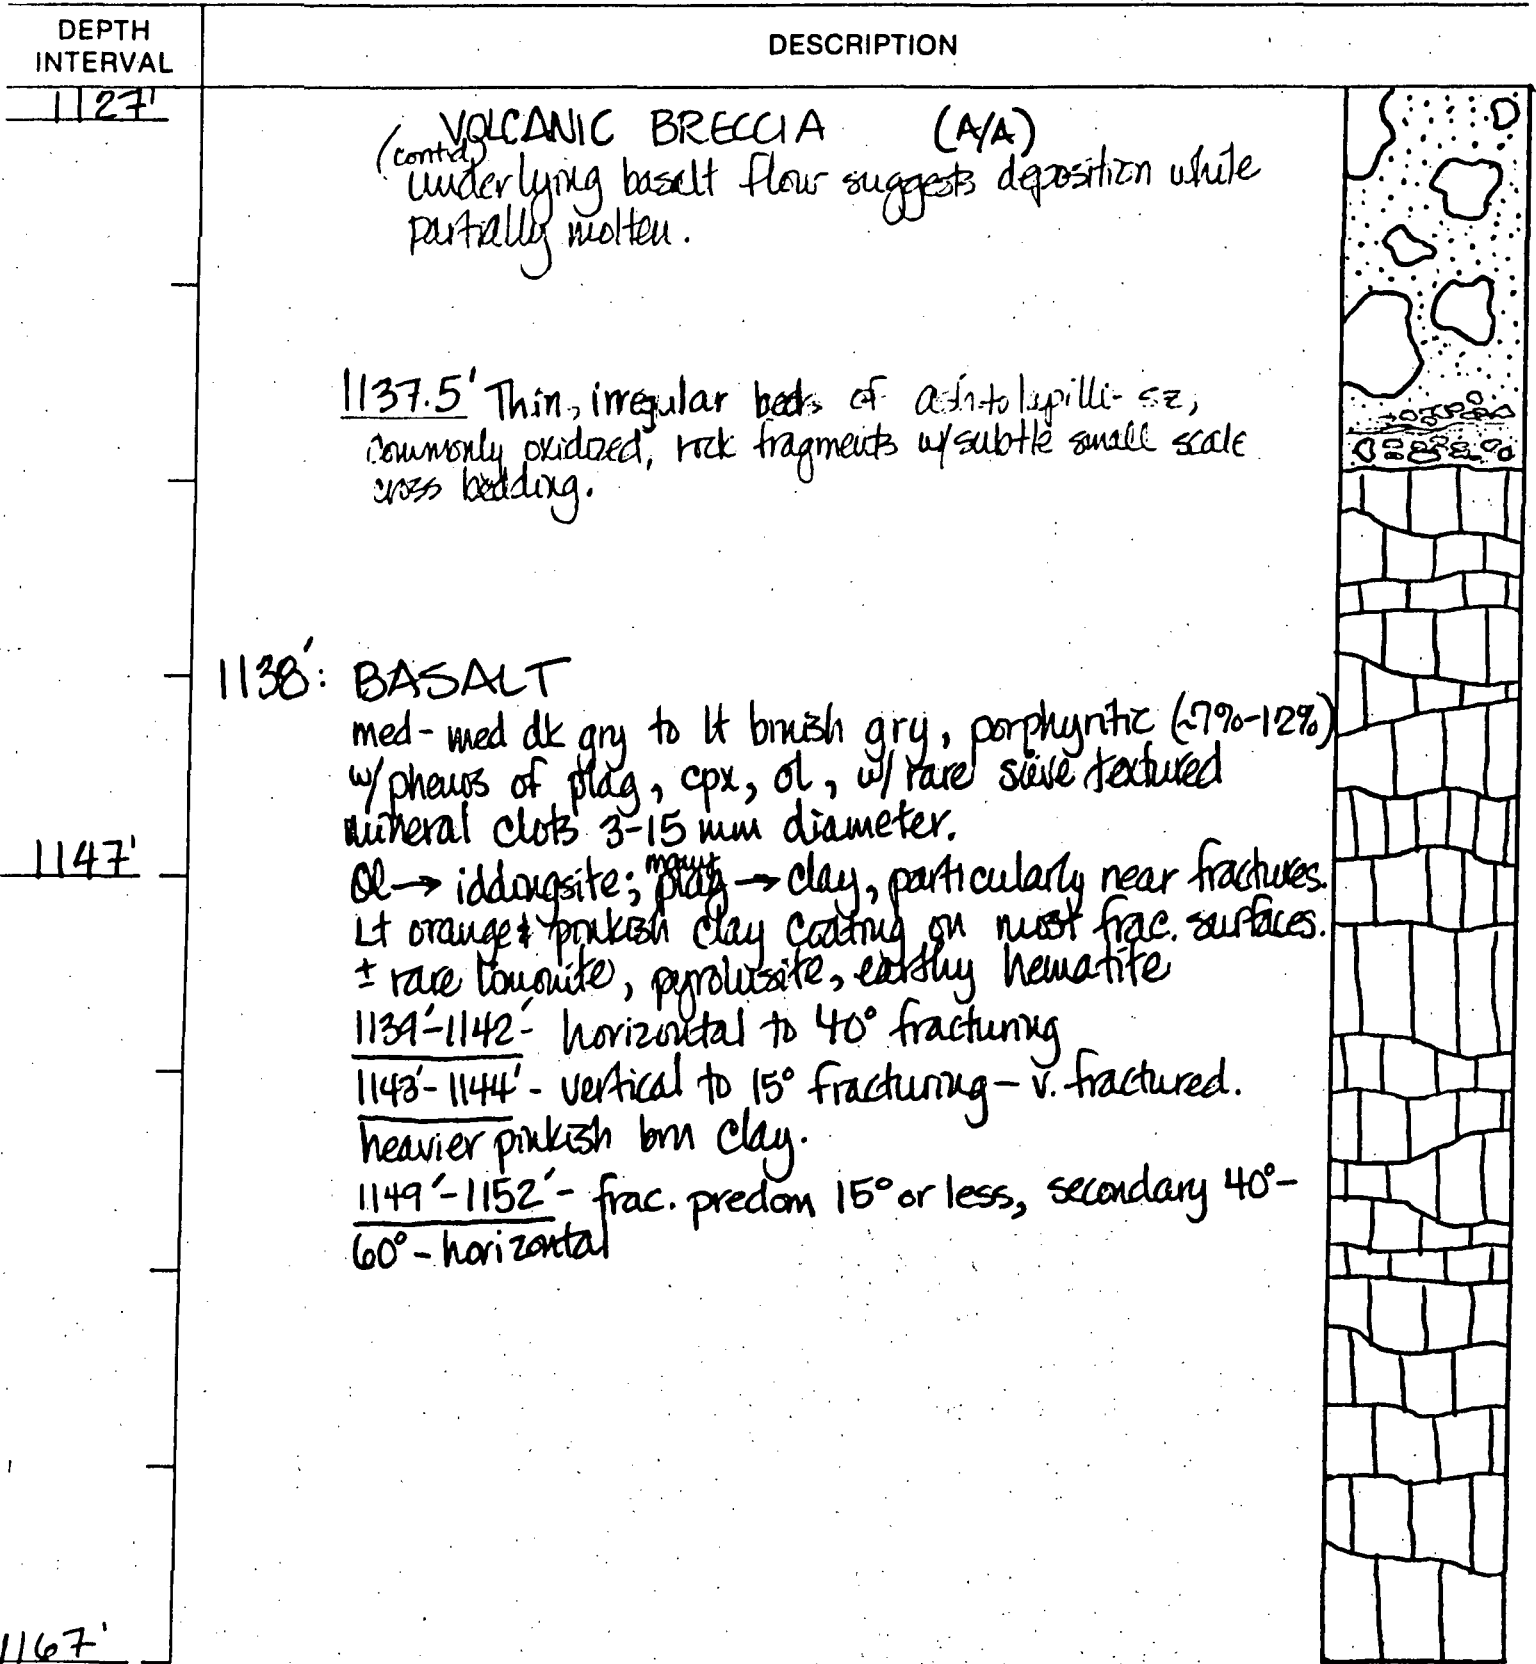 DEPTH INTERVAL
DESCRIPTION
1127'
VOLCANIC BRECCIA (A/A)
(cont'd)
underlying basalt flow suggests deposition while
partially molten.
1137.5' Thin, irregular beds of ash to lapilli- sz,
commonly oxidized, rock fragments w/subtle small scale
cross bedding.
1138': BASALT
med - med dk gry to lt brnish gry, porphyritic (~7%-12%)
w/ phenos of plag, cpx, ol, w/ rare sieve textured
mineral clots 3-15 mm diameter.
1147'
Ol → iddingsite; many plag → clay, particularly near fractures.
Lt orange & pinkish clay coating on most frac. surfaces.
± rare limonite, pyrolusite, earthy hematite
1139'-1142'- horizontal to 40° fracturing
1143'-1144' - vertical to 15° fracturing - v. fractured.
heavier pinkish brn clay.
1149'-1152' - frac. predom 15° or less, secondary 40°-
60° - horizontal
1167'